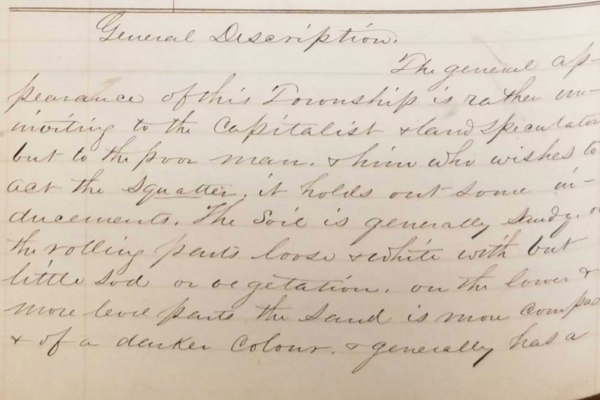 General Description.
The general ap-
pearance of this Township is rather un-
inviting to the Capitalist & land speculator
but to the poor man. & him who wishes to
act the squatter, it holds out some in-
ducements. The Soil is generally sandy, o
the rolling parts loose & white with but
little sod or vegetation. on the lower &
more level parts the Sand is more compac
& of a darker colour. & generally has a